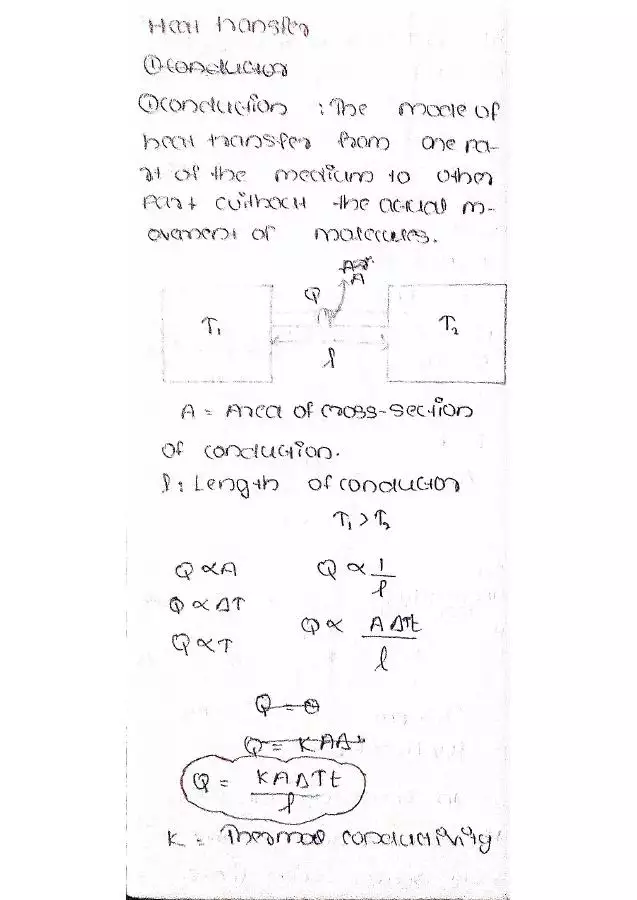 Heat transfer
① Conductor
① Conduction : The mode of
heat transfer from one pa-
rt of the medium to other
part without the actual m-
ovement of molecules.
A
Q
T₁
T₂
l
A = Area of cross-section
of conduction.
l : Length of conductor
T₁ > T₂
Q ∝ A
Q ∝ 1/l
Q ∝ ΔT
Q ∝ AΔTt/l
Q ∝ T
Q = θ
Q = KAΔ
Q = KAΔTt/l
K = Thermal conductivity